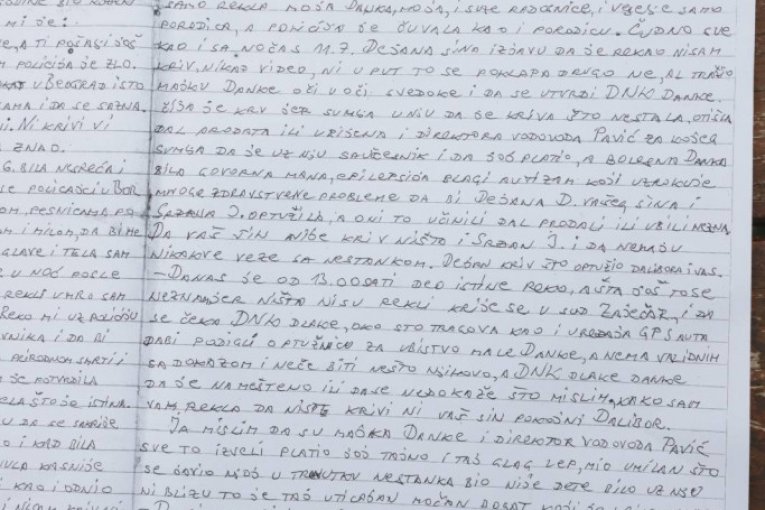 MI JE!
E, A TI POŠALJI JOŠ
POLICIJA JE ZLO.
U BEOGRAD ISTO
AMA I DA SE SAZNA.
I. NI KRIVI VI
ZNAO.
6. BILA NESREĆA I
LE POLICAJCI U BOR
OM, PESNICAMA PO
M I MILOM, DA BI ME
GLAVE I TELA SAM
U NOĆ POSLE
REKLI UMRO SAM
REKO MI U POLICIJU
VNIKA I DA BI
PRIRODNOM SMRTI I
JE POTVRDILA
ELA ŠTO JE ISTINA.
U DA SE SAKRIJE
O I KAD BILA
KASNIJE
I KAO I ODNIO
SAMO REKLA MOJA DANKA, MOJA, I SVE RADOSNICE, I VESELJE SAMO
PORODICA, A POLICIJA JE ČUVALA KAO I PORODICU. ČUDNO SVE
KAO I SA NOĆAS 11.7. DEJANA SINA IZJAVU DA JE REKAO NISAM
KRIV, NIKAD VIDEO, NI U PUT TO SE POKLAPA DRUGO NE, AL TRAŽIO
MAJKU DANKE OČI U OČI SVEDOKE I DA SE UTVRDI DNK DANKE.
ČIJA JE KRV JER SUMJA U NJU DA JE KRIVA ŠTO NESTALA, OTIŠLA
DAL PRODATA ILI UBIJENA I DIREKTORA VODOVODA PAVIĆ ZA KOJEG
SUMJA DA JE UZ NJU SAUČESNIK I DA JOJ PLATIO, A BOLESNA DANKA
BILA GOVORNA MANA, EPILEPSIJA BLAGI AUTIZAM KOJI UZROKUJE
MNOGE ZDRAVSTVENE PROBLEME DA BI DEJANA D. VAŠEG SINA I
SRĐANA J. OPTUŽILA, A ONI TO UČINILI DAL PRODALI ILI UBILI NEZNA.
DA VAŠ SIN NIJE KRIV NIŠTA I SRĐAN J. I DA NEMAJU
NIKAKVE VEZE SA NESTANKOM. DEJAN KRIV ŠTO OPTUŽIO DALIBORA I VAS.
- DANAS JE OD 13.00 SATI DEO ISTINE REKO, A ŠTA JOŠ TO SE
NEZNA JER NIŠTA NISU REKLI KRIJE SE U SUD ZAJEČAR, I ZA
SE ČEKA DNK DLAKE, OKO STO TRAGOVA KAO I UREĐAJA GPS AUTA
DA BI PODIGLI OPTUŽNICU ZA UBISTVO MALE DANKE, A NEMA VALIDNIH
SA DOKAZOM I NEĆE BITI NEŠTO NJIHOVO, A DNK DLAKE DANKE
DA JE NAMEŠTENO ILI DA SE NEDOKAŽE ŠTO MISLIM, KAKO SAM
VAM, REKLA DA NISTE KRIVI NI VAŠ SIN POKOJNI DALIBOR.
JA MISLIM DA SU MAJKA DANKE I DIREKTOR VODOVODA PAVIĆ
SVE TO IZVELI PLATIO JOJ TAJNO I TAJ GLAG LEP, MIO UMILAN ŠTO
SE JAVIO NJOJ U TRENUTKU NESTANKA BIO NIJE DETE BILO UZ NJU
NI BLIZU TO JE TAJ UTICAJAN MOĆAN BOGAT